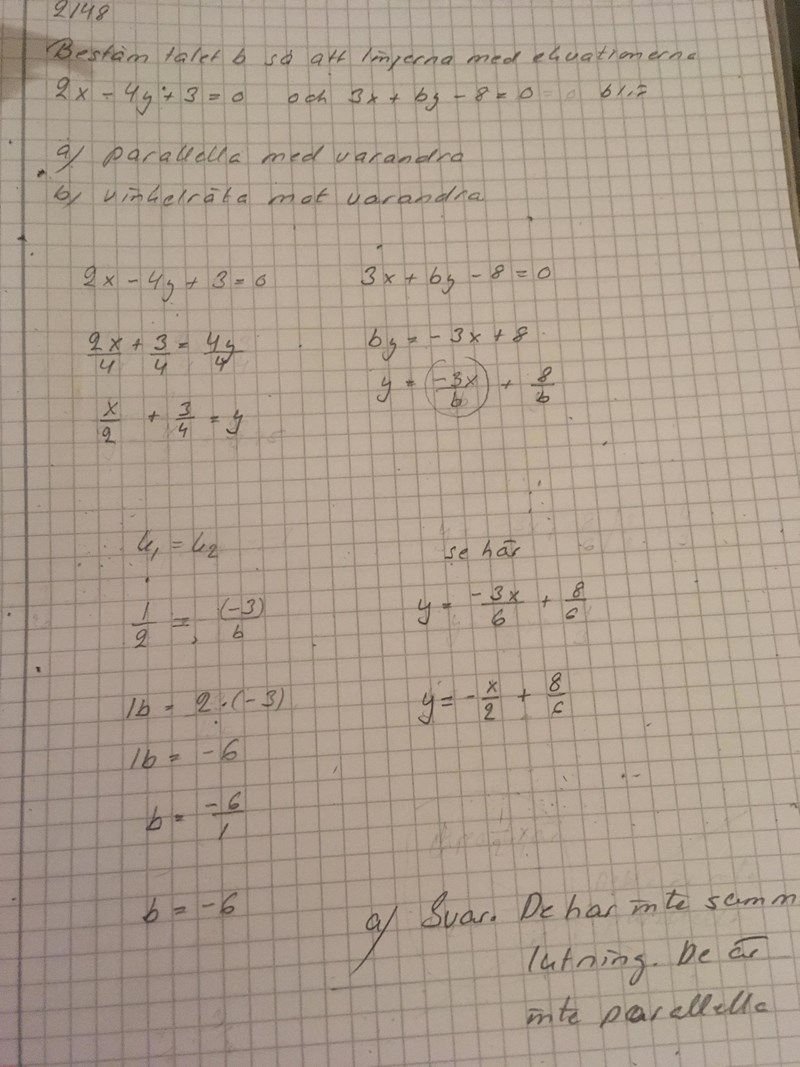 2148
Bestäm talet b så att linjerna med ekvationerna
2x - 4y + 3 = 0 och 3x + by - 8 = 0 blir
a) parallella med varandra
b) vinkelräta mot varandra
2x - 4y + 3 = 0
2x/4 + 3/4 = 4y/4
x/2 + 3/4 = y
3x + by - 8 = 0
by = -3x + 8
y = (-3x/b) + 8/b
k₁ = k₂
1/2 = (-3)/b
1b = 2 · (-3)
1b = -6
b = -6/1
b = -6
se här
y = -3x/6 + 8/6
y = -x/2 + 8/6
a) Svar. De har inte samm
lutning. De är
inte parallella